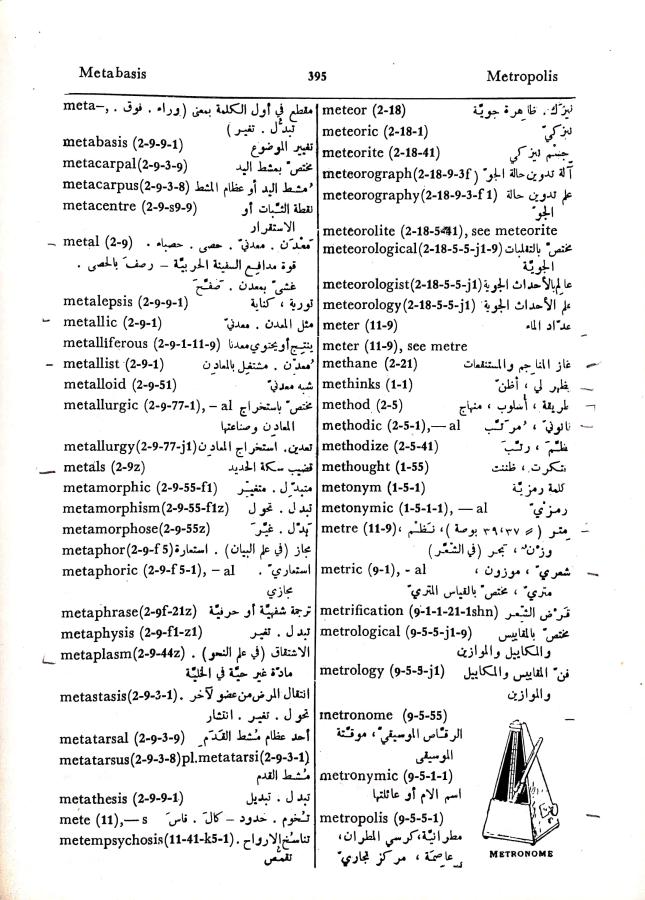 Metabasis
395
Metropolis
meta–, مقطع في أول الكلمة بمعنى (وراء . فوق .
تبدّل . تغير)
metabasis (2-9-9-1) تغيير الموضوع
metacarpal(2-9-3-9) مختصّ بمشط اليد
metacarpus(2-9-3-8) مشط اليد أو عظام المشط
metacentre (2-9-s9-9) نقطة الثبات أو
الاستقرار
metal (2-9) مَعْدِن . معدنيّ . حصى . حصباء .
قوة مدافع السفينة الحربيّة – رصفَ بالحصى .
غشّى بمعدن . صفّح
metalepsis (2-9-9-1) تورية ، كناية
metallic (2-9-1) مثل المعدن . معدنيّ
metalliferous (2-9-1-11-9) ينتج أو يحتوي معدنا
metallist (2-9-1) مُعدّن . مشتغل بالمعادن
metalloid (2-9-51) شبه معدنيّ
metallurgic (2-9-77-1), – al مختصّ باستخراج
المعادن وصناعتها
metallurgy(2-9-77-j1) تعدين. استخراج المعادن
metals (2-9z) قضيب سكة الحديد
metamorphic (2-9-55-f1) متبدّل . متغيّر
metamorphism(2-9-55-f1z) تبدل . تحول
metamorphose(2-9-55z) بدّل . غيّر
metaphor(2-9-f5) مجاز (في علم البيان) . استعارة
metaphoric (2-9-f5-1), – al استعاريّ .
مجازي
metaphrase(2-9f-21z) ترجمة شفهيّة أو حرفيّة
metaphysis (2-9-f1-z1) تبدل . تغير
metaplasm(2-9-44z) الاشتقاق (في علم النحو) .
مادّة غير حيّة في الخليّة
metastasis(2-9-3-1) انتقال المرض من عضو لآخر .
تحول . تغير . انتشار
metatarsal (2-9-3-9) أحد عظام مُشط القدم
metatarsus(2-9-3-8)pl.metatarsi(2-9-3-1)
مُشط القدم
metathesis (2-9-9-1) تبدل . تبديل
mete (11),— s تخوم . حدود – كالَ . قاسَ
metempsychosis(11-41-k5-1) تناسُخ الارواح .
تقمّص
meteor (2-18) نيزك. ظاهرة جويّة
meteoric (2-18-1) نيزكيّ
meteorite (2-18-41) جسم نيزكي
meteorograph(2-18-9-3f) آلة تدوين حالة الجوّ
meteorography(2-18-9-3-f1) علم تدوين حالة
الجوّ
meteorolite (2-18-5-41), see meteorite
meteorological(2-18-5-5-j1-9) مختصّ بالتقلبات
الجويّة
meteorologist(2-18-5-5-j1) عالم بالأحداث الجوية
meteorology(2-18-5-5-j1) علم الأحداث الجوية
meter (11-9) عدّاد الماء
meter (11-9), see metre
methane (2-21) غاز المناجم والمستنقعات
methinks (1-1) يظهر لي ، أظنّ
method (2-5) طريقة ، أسلوب ، منهاج
methodic (2-5-1),— al قانونيّ ، مُرتّب
methodize (2-5-41) نظّم ، رتّب
methought (1-55) فتكرت ، ظننت
metonym (1-5-1) كلمة رمزيّة
metonymic (1-5-1-1), — al رمزيّ
metre (11-9) متر (= ٣٩،٣٧ بوصة) ، نَظْم ،
وزن ، بحر (في الشعر)
metric (9-1), - al شعريّ ، موزون ،
متريّ ، مختصّ بالقياس المتريّ
metrification (9-1-1-21-1shn) قرض الشعر
metrological (9-5-5-j1-9) مختصّ بالمقاييس
والمكاييل والموازين
metrology (9-5-5-j1) فنّ المقاييس والمكاييل
والموازين
metronome (9-5-55)
الرقّاص الموسيقيّ ، موقتة
الموسيقى
metronymic (9-5-1-1)
اسم الام أو عائلتها
metropolis (9-5-5-1)
مطرانيّة، كرسي المطران،
عاصمة ، مركز تجاريّ
METRONOME